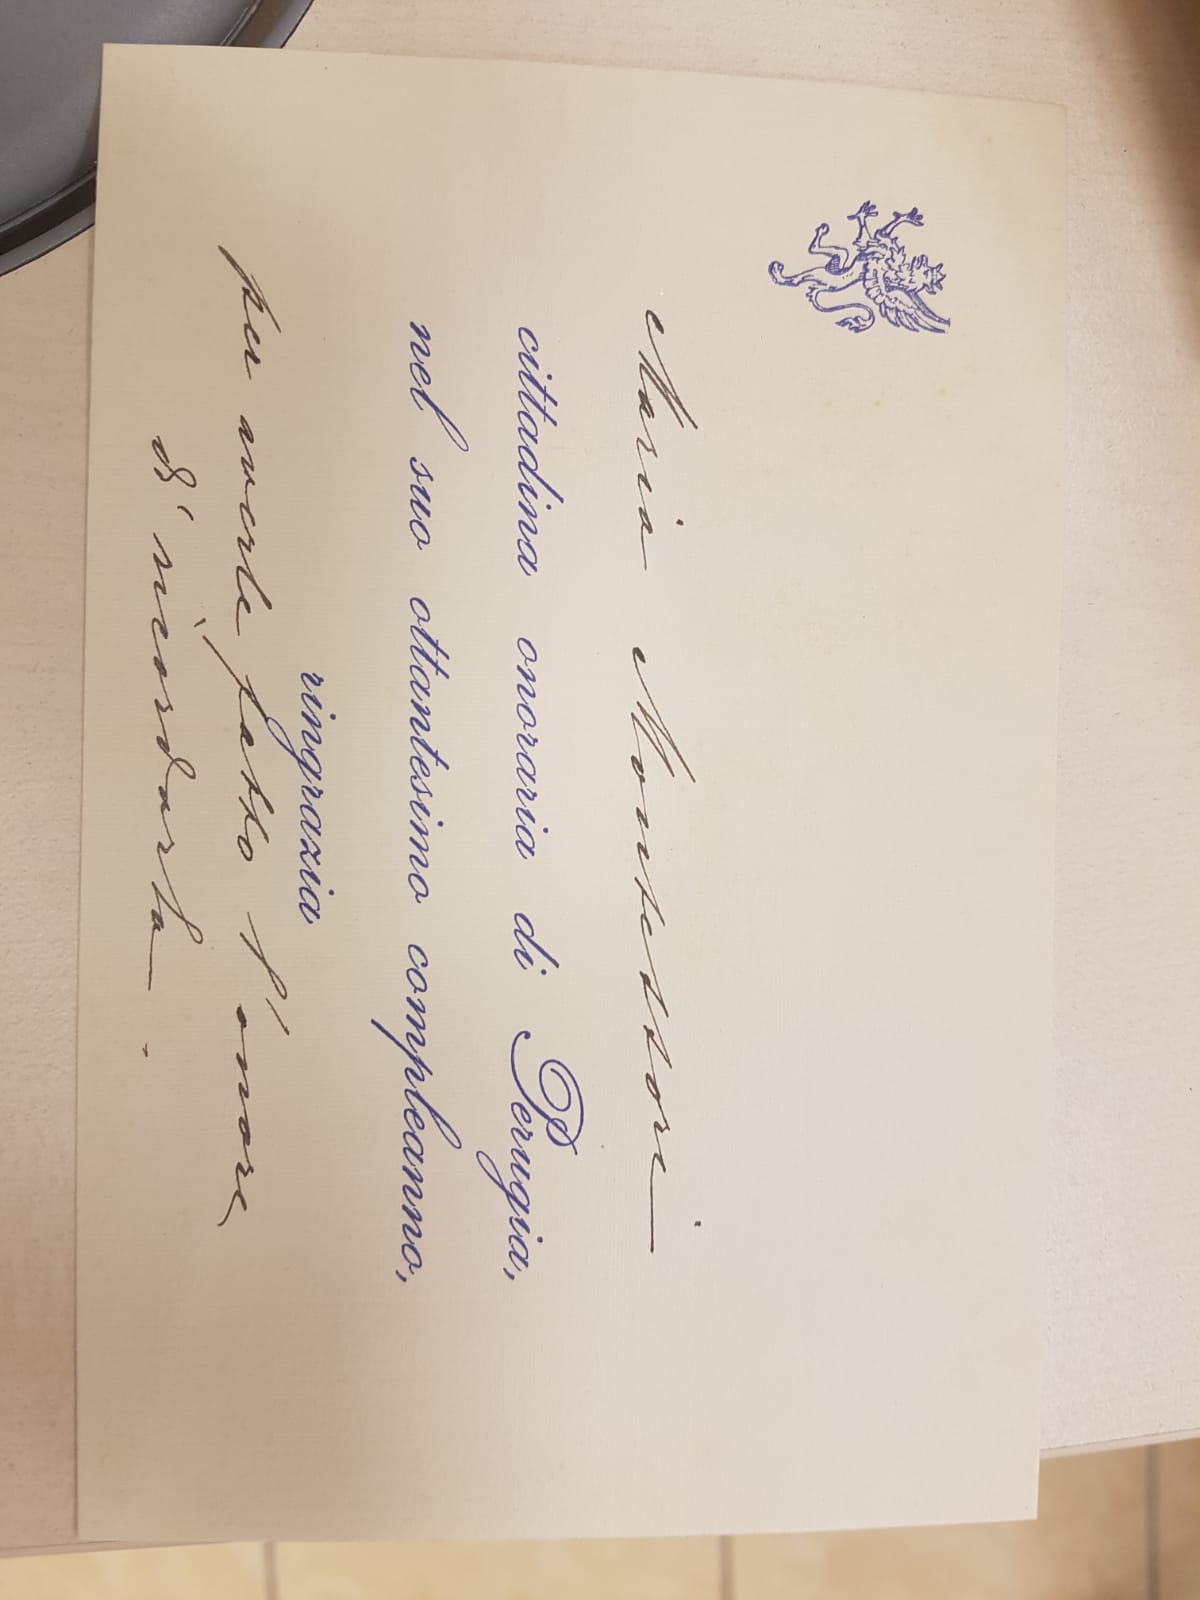 Maria Montessori
cittadina onoraria di Perugia,
nel suo ottantesimo compleanno,
ringrazia
per averle fatto l'onore,
di ricordarla.